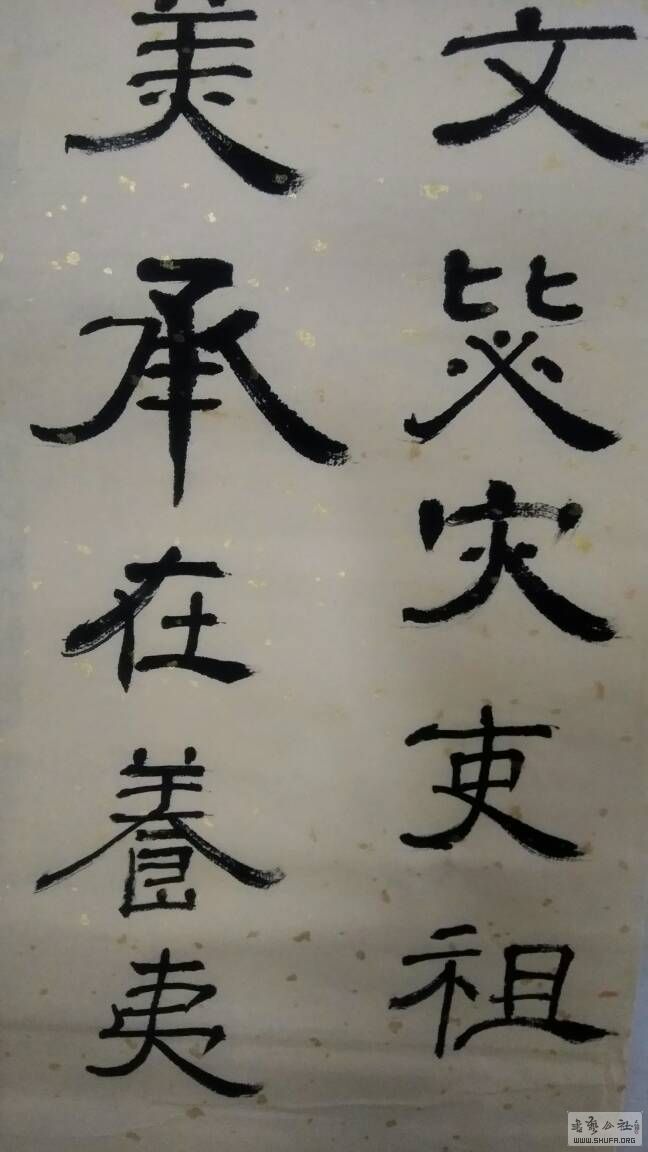 文毖灾吏祖
美承在養夷
书艺公社
WWW.SHUFA.ORG